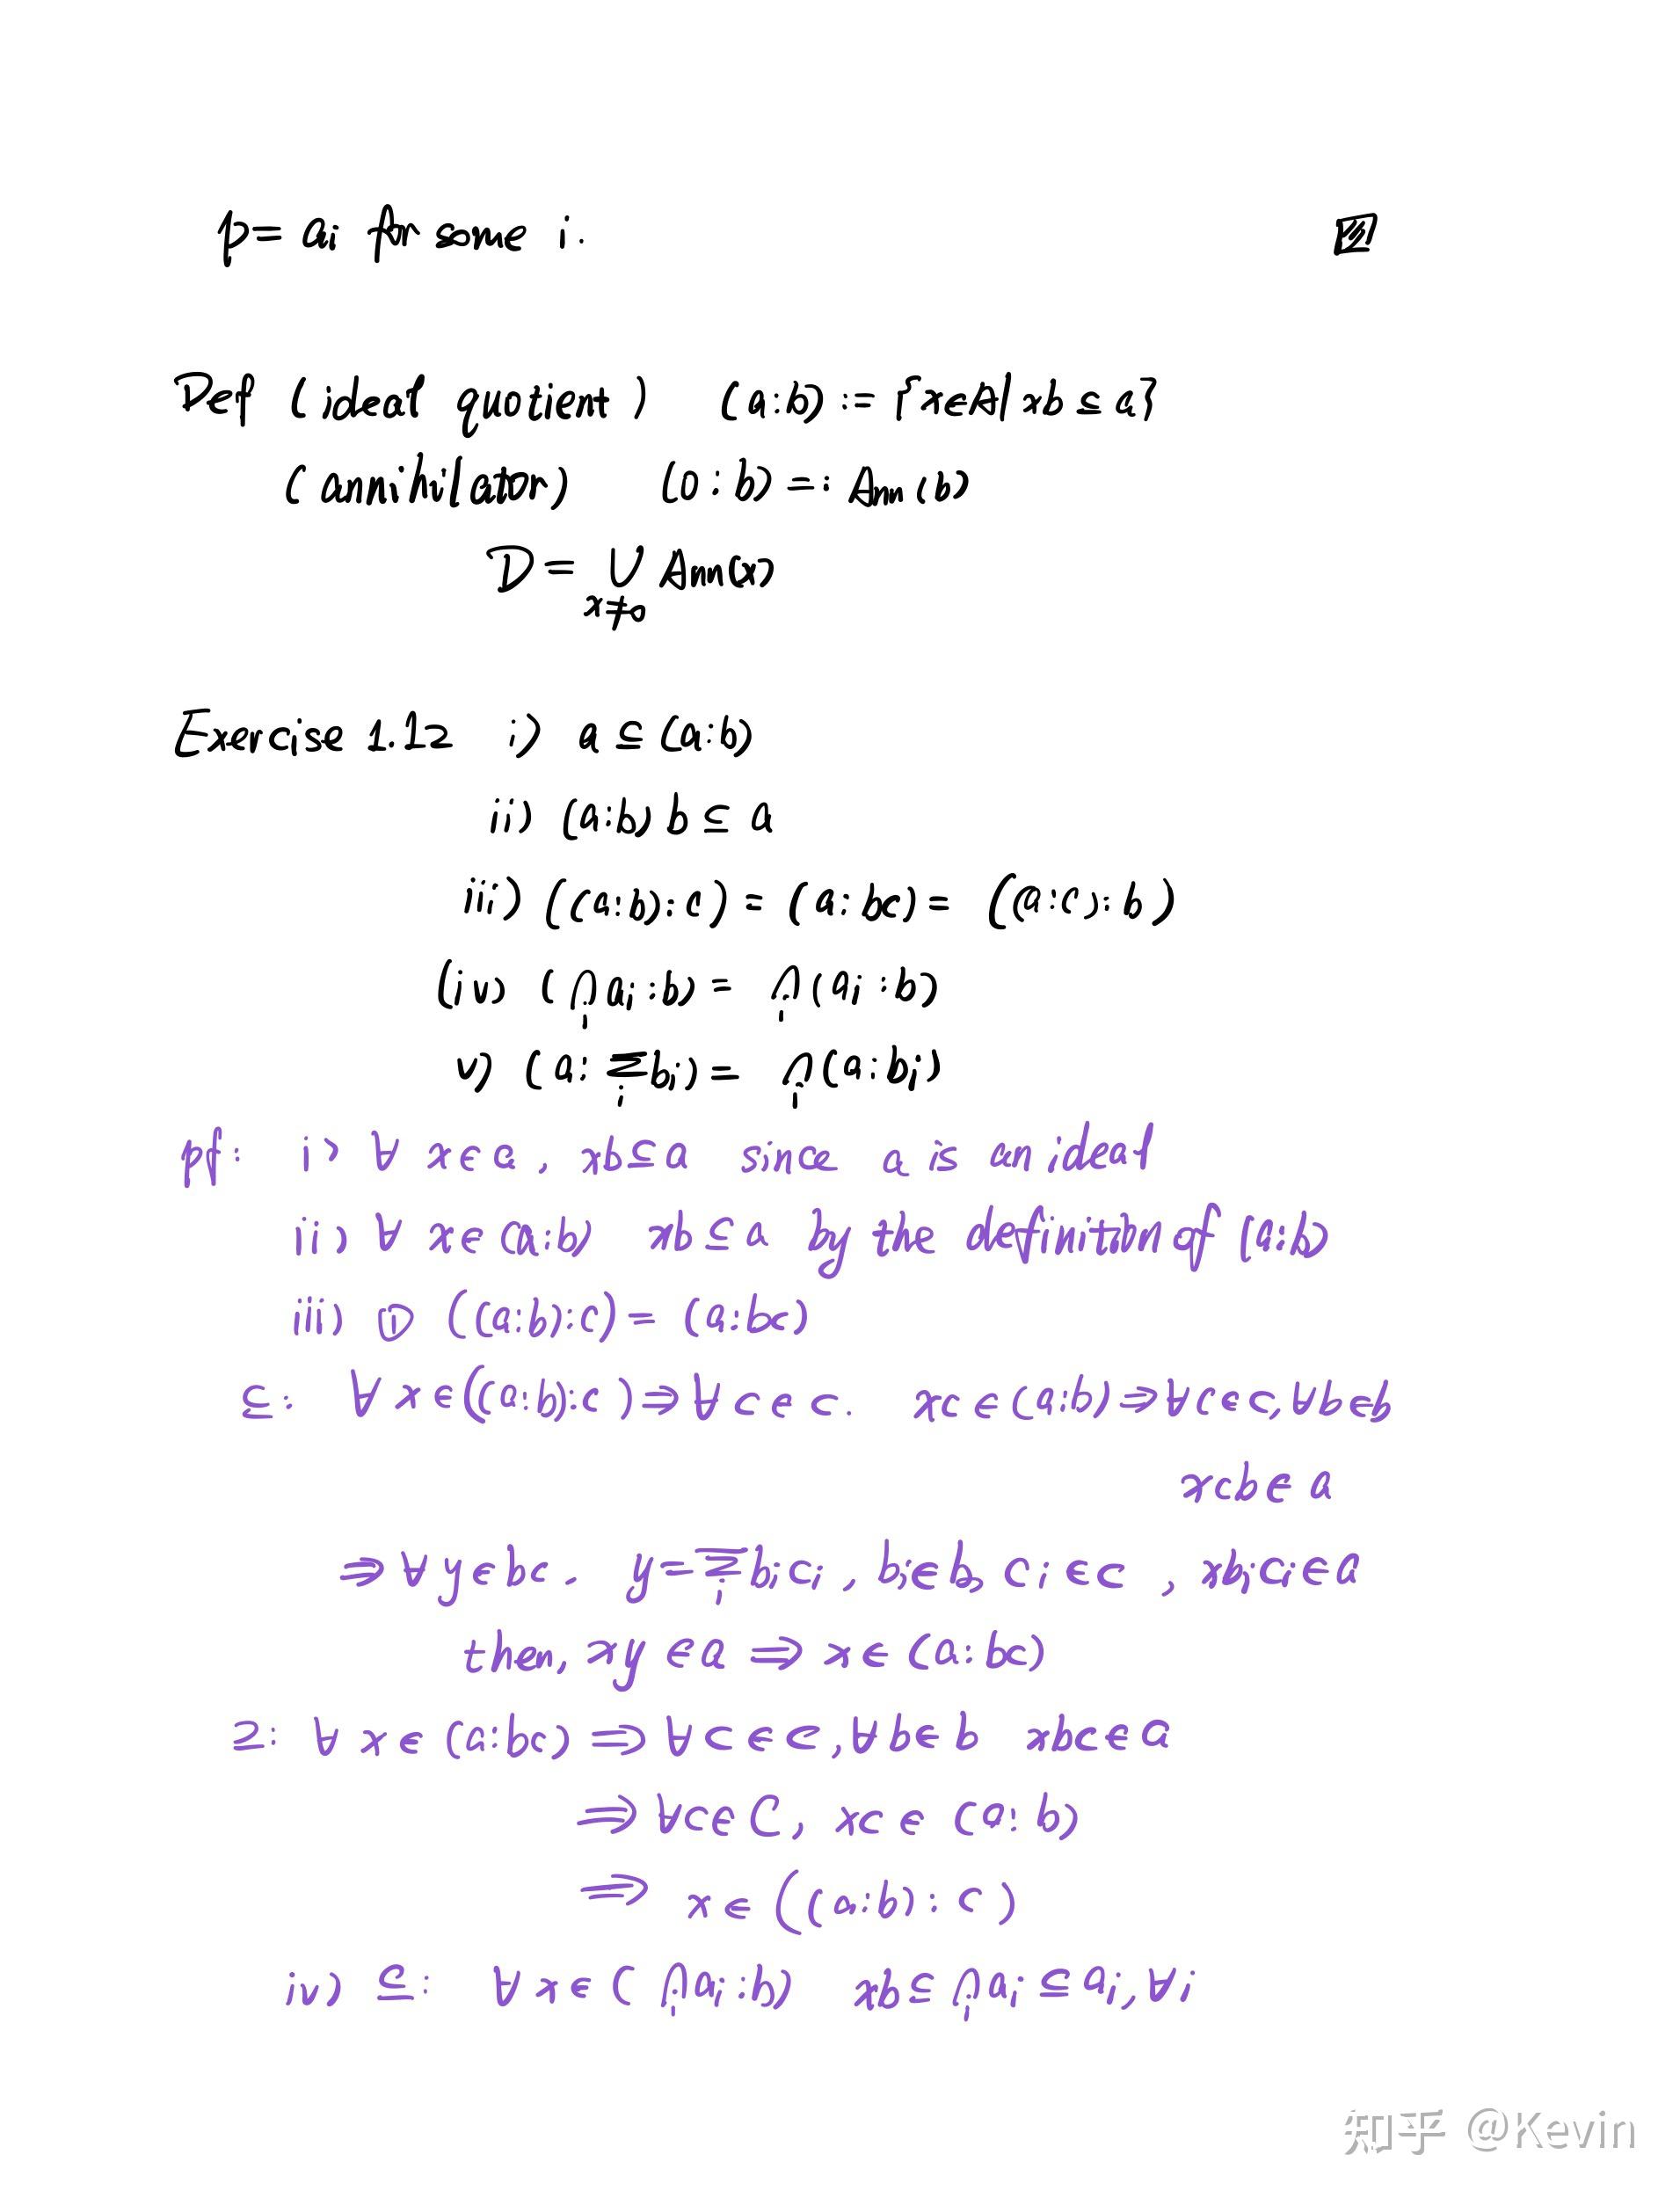 p = ai for some i.
Def (ideal quotient) (a:b) := {x∈A | xb ⊆ a}
(annihilator) (0:b) =: Ann(b)
D = ∪ Ann(x)
x≠0
Exercise 1.12 i) a ⊆ (a:b)
ii) (a:b) b ⊆ a
iii) ((a:b):c) = (a:bc) = ((a:c):b)
(iv) (∩i ai : b) = ∩i (ai : b)
v) (a: Σi bi) = ∩i (a:bi)
pf: i) ∀ x∈a, xb⊆a since a is an ideal
ii) ∀ x∈(a:b) xb ⊆ a by the definition of (a:b)
iii) ① ((a:b):c) = (a:bc)
⊆: ∀ x∈((a:b):c) ⇒ ∀ c∈c. xc∈(a:b) ⇒ ∀c∈c, ∀b∈b
xcb∈a
⇒ ∀ y∈bc. y=Σi bici, bi∈b, ci∈c, xbici∈a
then, xy∈a ⇒ x∈(a:bc)
⊇: ∀ x∈(a:bc) ⇒ ∀c∈c, ∀b∈b xbc∈a
⇒ ∀c∈C, xc∈(a:b)
⇒ x∈((a:b):c)
iv) ⊆: ∀ x∈(∩i ai:b) xb⊆∩i ai⊆ai, ∀i
知乎 @Kevin